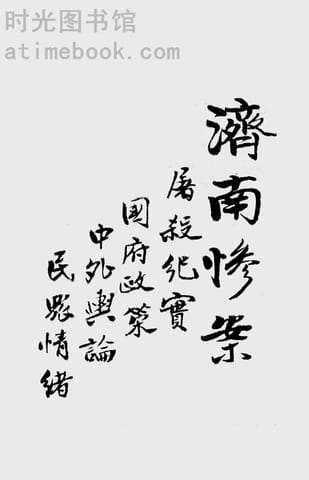 时光图书馆
atimebook.com
濟南慘案
屠殺紀實
國府政策
中外輿論
民眾情緒